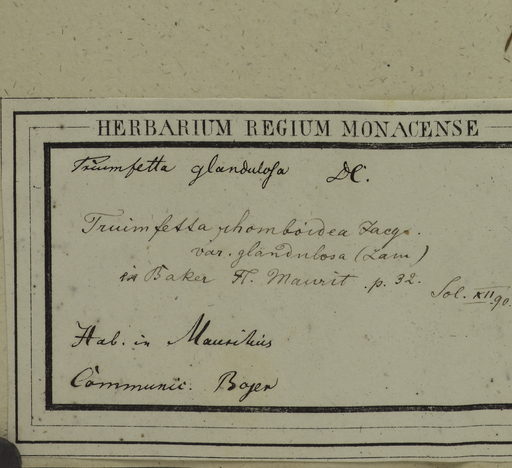 HERBARIUM REGIUM MONACENSE
Triumfetta glandulosa DC.
Truimfetta rhomboidea Jacq.
var. glandulosa (Lam)
in Baker Fl. Maurit. p. 32.
Sol. XII 90.
Hab. in Mauritius
Communic. Bojer